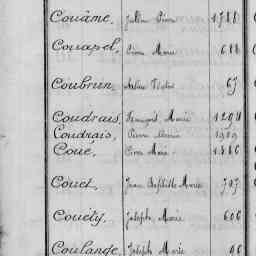 Couâme, Julien Pierre 1788
Couapel, Pierre Marie 688
Coubrun, 67
Coudrais, François Marie 1294
Coudrais, Pierre Marie 1909
Coué, Pierre Marie 1886
Couet, Jean Baptiste Marie 797
Couëty, Joseph Marie 606
Coulange, Joseph Marie 96